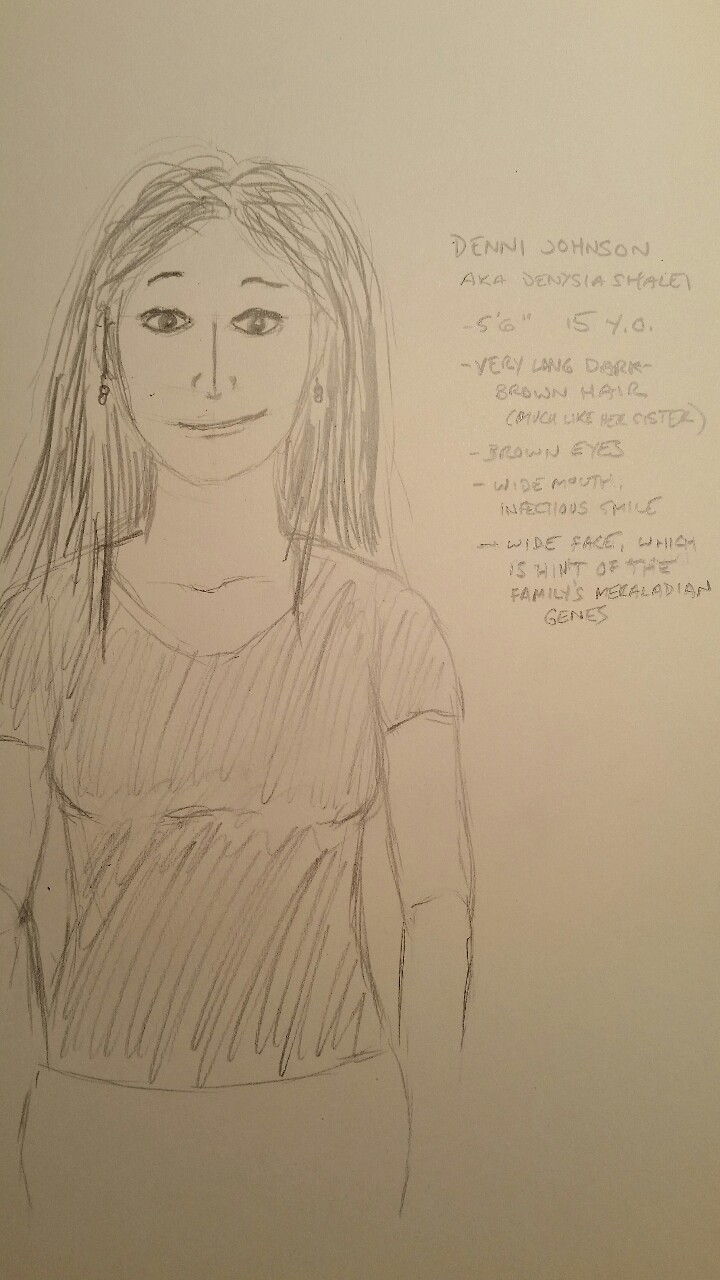 DENNI JOHNSON
AKA DENYSIA SHALEI
-5'6" 15 Y.O.
-VERY LONG DARK-
BROWN HAIR
(MUCH LIKE HER SISTER)
-BROWN EYES
-WIDE MOUTH,
INFECTIOUS SMILE
-WIDE FACE, WHICH
IS HINT OF THE
FAMILY'S MERALADIAN
GENES